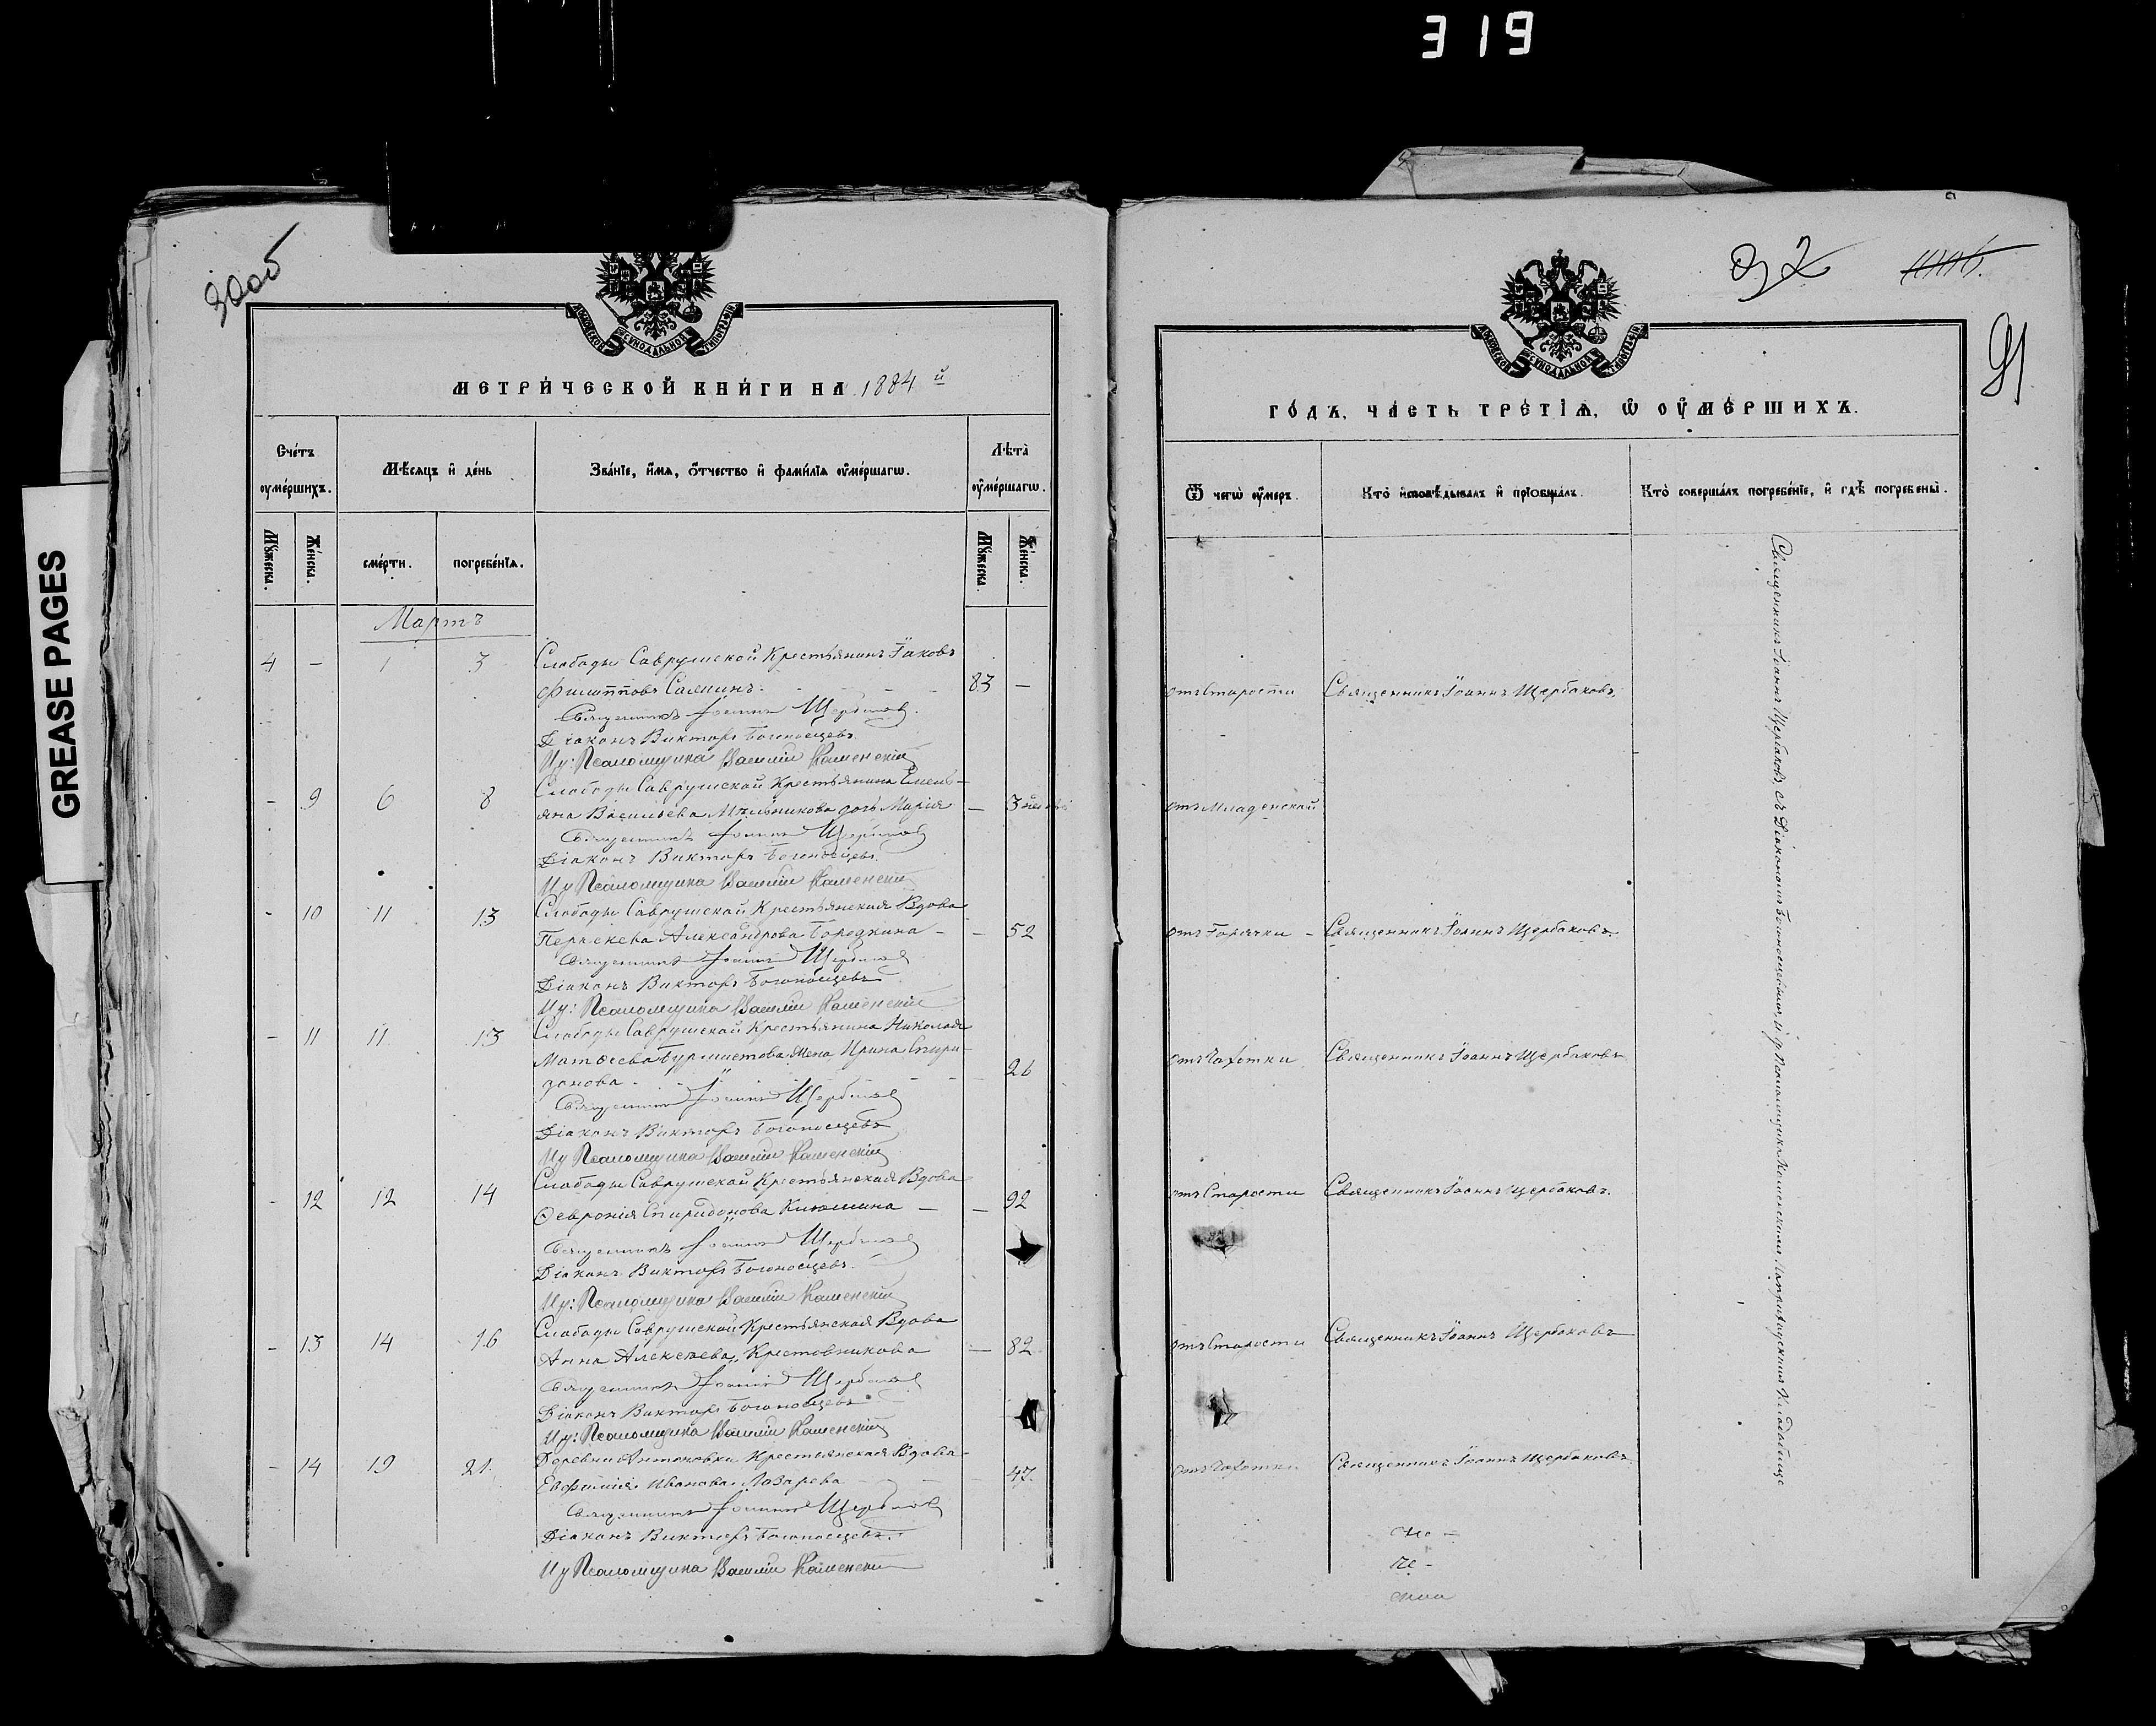 319
GREASE PAGES
90об
МЕТРИ́ЧЕСКОЙ КНИ́ГИ НА 1884 й
Сче́тъ ᲂу҆ме́ршихъ.
Мѣ́сѧцъ и҆ де́нь
Зва́нїе, и҆́мѧ, ѻ҆́тчество и҆ фамн́лїѧ ᲂу҆ме́ршагѡ.
Лѣ́та ᲂу҆ме́ршагѡ.
Мꙋ́жеска.
Же́нска.
сме́рти.
погребе́нїѧ.
Мꙋ́жеска.
Же́нска.
Мартъ
4 – 1 3 Слободы Саврушской Крестьянинъ Іаковъ
Филипповъ Салминъ. 83 –
Священникъ Іоаннъ Щербаковъ.
Діаконъ Викторъ Богоносцевъ
И д: Псаломщика Василій Каменскій
– 9 6 8 Слободы Саврушской Крестьянина Емель-
яна Васильева Мельникова дочь Марія – 3
Священникъ Іоаннъ Щербаковъ
Діаконъ Викторъ Богоносцевъ.
И д Псаломщика Василій Каменскій
– 10 11 13 Слободы Саврушской Крестьянская Вдова
Александрова Бородкина – – 52
Священникъ Іоаннъ Щербаковъ
Діаконъ Викторъ Богоносцевъ
И д: Псаломщика Василій Каменскій
– 11 11 13 Слободы Саврушской Крестьянина Николая
Матѳеева Бурмистова жена Ирина Спири-
донова 26
Священникъ Іоаннъ Щербаковъ
Діаконъ Викторъ Богоносцевъ
И д Псаломщика Василій Каменскій
– 12 12 14 Слободы Саврушской Крестьянская Вдова
Ѳевронія Спиридонова – – 92
Священникъ Іоаннъ Щербаковъ
Діаконъ Викторъ Богоносцевъ.
И д: Псаломщика Василій Каменскій
– 13 14 16 Слободы Саврушской Крестьянская Вдова
Анна Алексѣева Крестовникова – 82
Священникъ Іоаннъ Щербаковъ
Діаконъ Викторъ Богоносцевъ
И д: Псаломщика Василій Каменскій
– 14 19 21 Деревни Антоновки Крестьянская Вдова
Евфимія Иванова Лазарева 47.
Священникъ Іоаннъ Щербаковъ
Діаконъ Викторъ Богоносцевъ.
И д Псаломщика Василій Каменскій
92
91
ГО́ДЪ, ЧА́СТЬ ТРЕ́ТЇѦ, Ѡ҆ ОУ҆МЕ́РШИХЪ.
Ѿ чегѡ̀ ᲂу҆́меръ.
Кто̀ и҆сповѣ́дывалъ и҆ прїобща́лъ.
Кто̀ соверша́лъ погребе́нїе, и҆ гдѣ̀ погребены̀.
отъ Старости Священникъ Іоаннъ Щербаковъ.
отъ Младенской
отъ Горячки – Священникъ Іоаннъ Щербаковъ
отъ Чахотки Священникъ Іоаннъ Щербаковъ
отъ Старости Священникъ Іоаннъ Щербаковъ.
отъ Старости Священникъ Іоаннъ Щербаковъ
отъ Чахотки Священникъ Іоаннъ Щербаковъ.
Священникъ Іоаннъ Щербаковъ, съ Діакономъ Богоносцевымъ, и д Псаломщика Каменскимъ На приходскомъ Кладбище